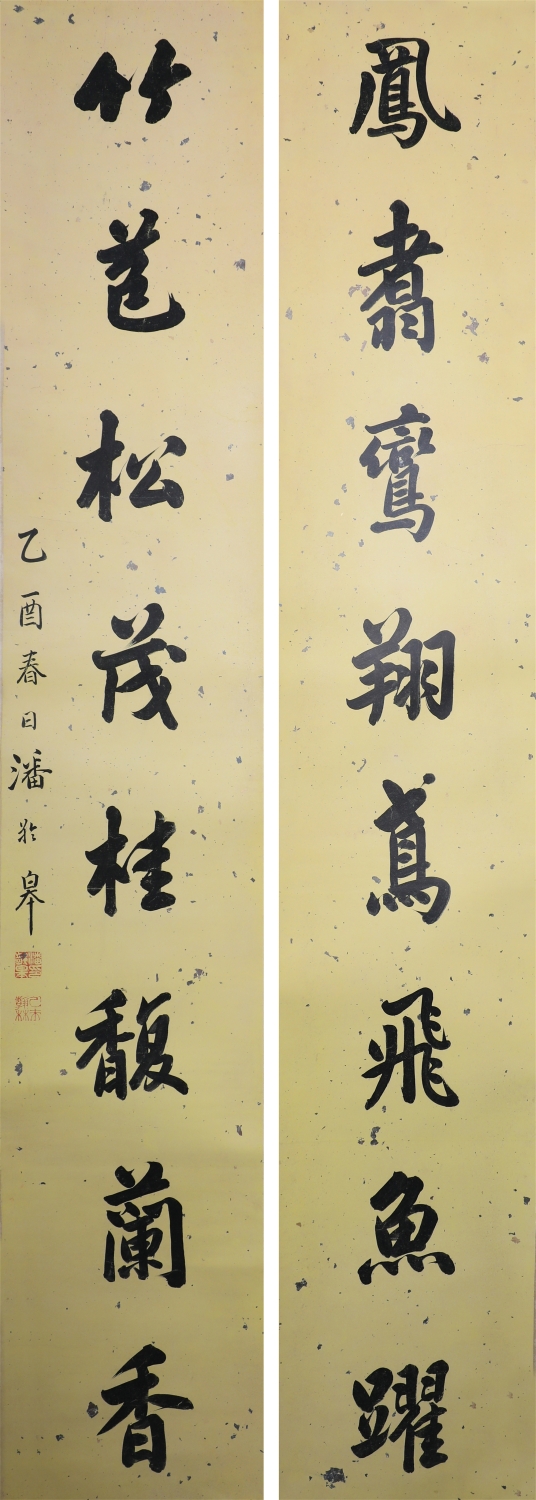 鳳翥鸞翔鳶飛魚躍
竹苞松茂桂馥蘭香
乙酉春日潘齡皋